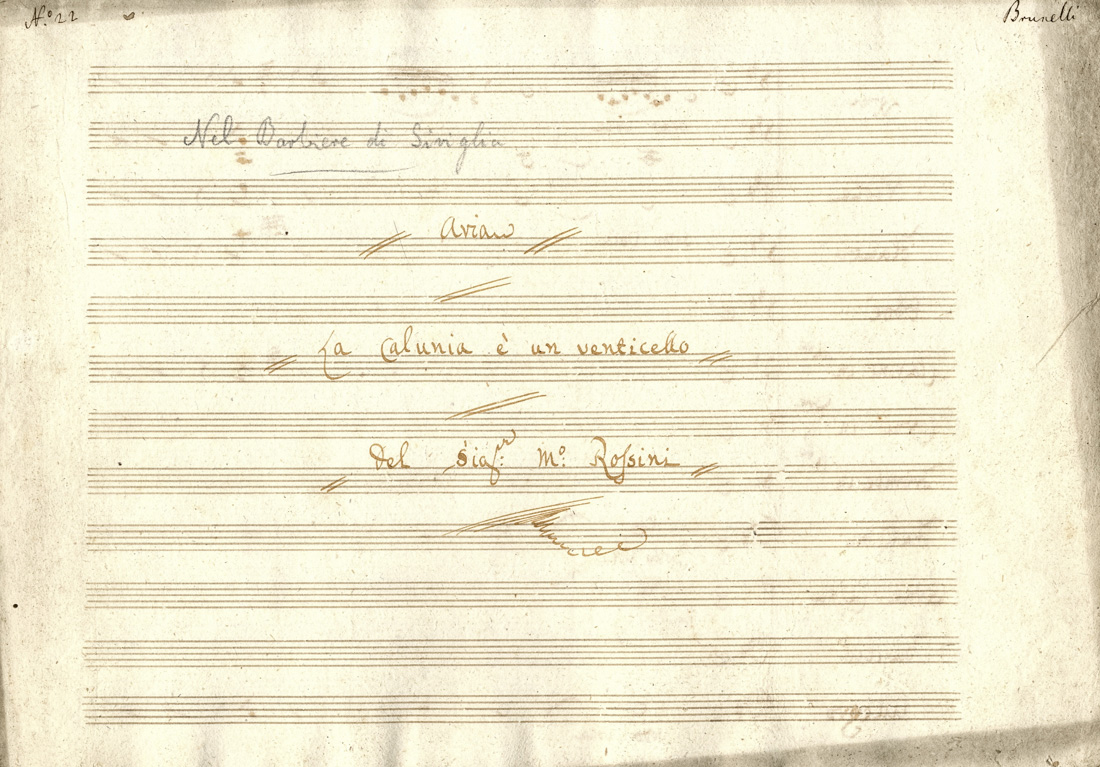 N.º 22
Brunelli
Nel Barbiere di Siviglia
Aria
La Calunia è un venticello
del Sig.r M.º Rossini